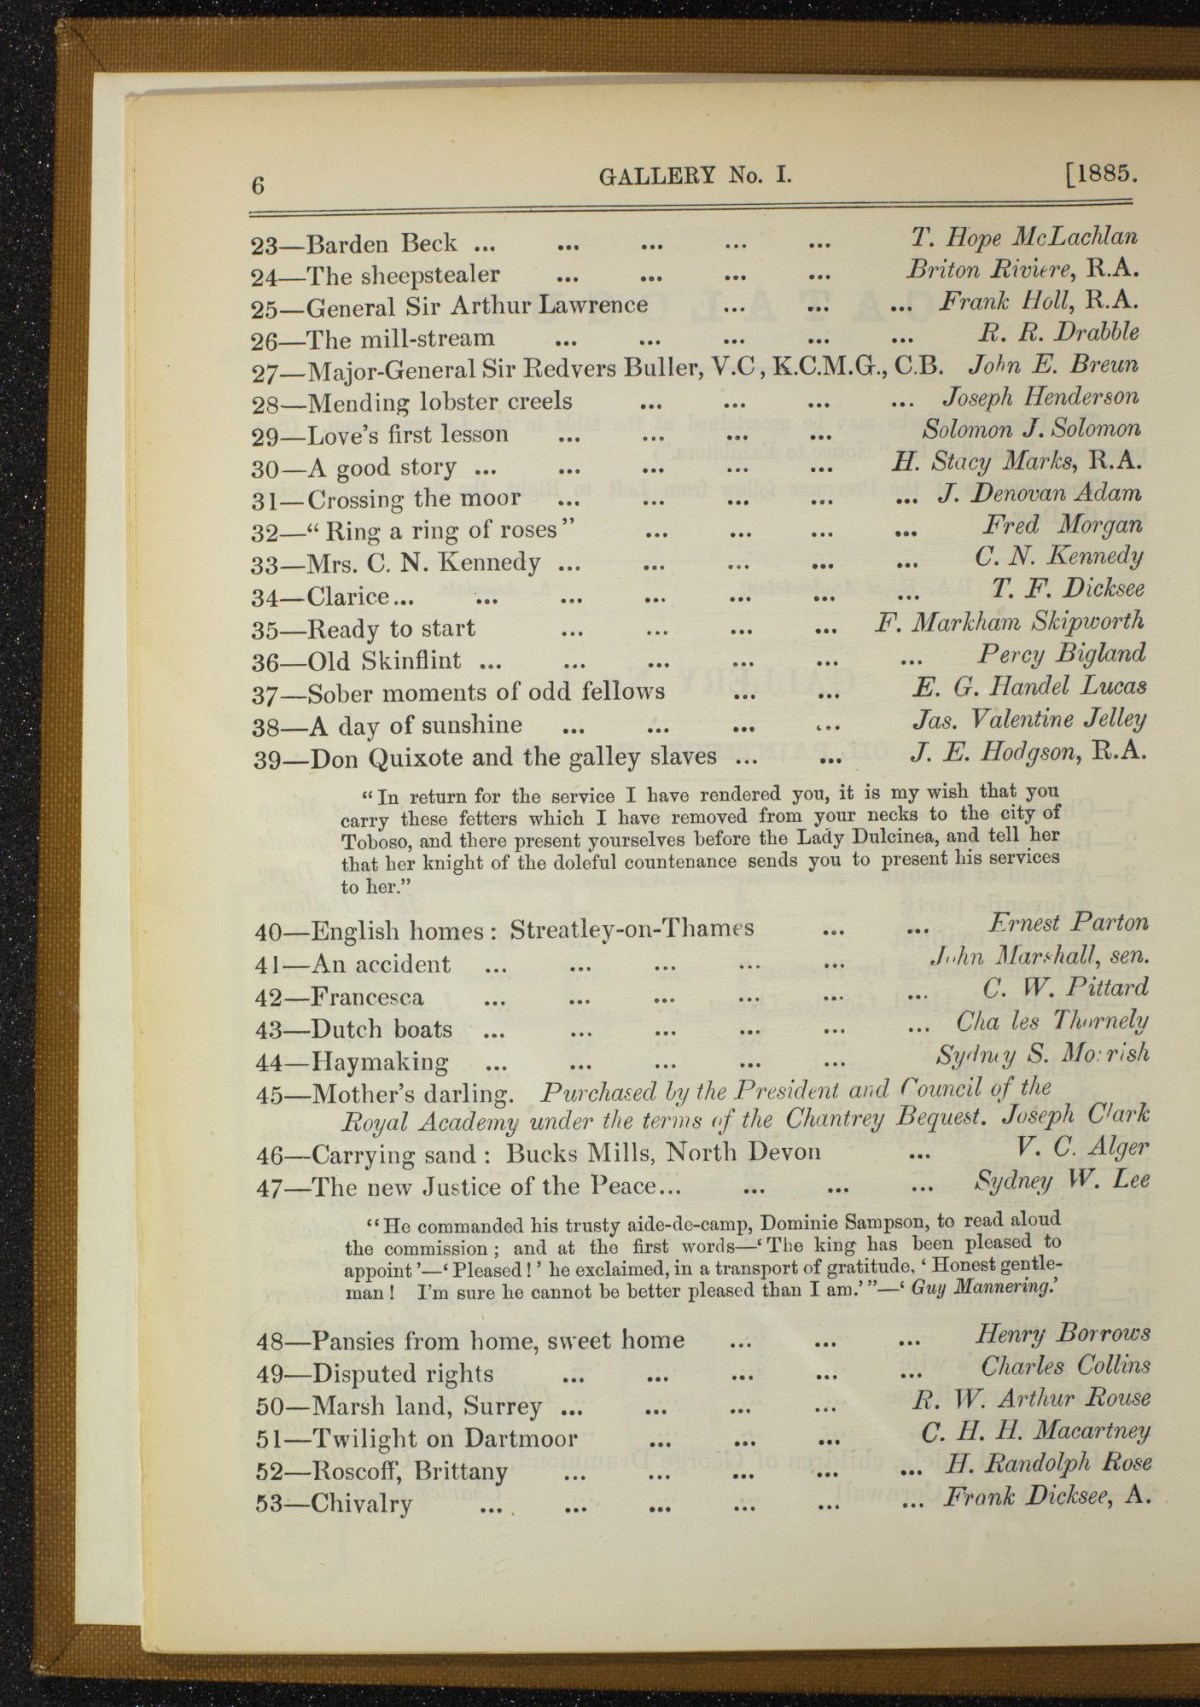 6 GALLERY No. I. [1885.
23—Barden Beck ... ... ... ... ... T. Hope McLachlan
24—The sheepstealer ... ... ... ... Briton Riviere, R.A.
25—General Sir Arthur Lawrence ... ... ... Frank Holl, R.A.
26—The mill-stream ... ... ... ... ... R. R. Drabble
27—Major-General Sir Redvers Buller, V.C, K.C.M.G., C.B. John E. Breun
28—Mending lobster creels ... ... ... ... Joseph Henderson
29—Love's first lesson ... ... ... ... Solomon J. Solomon
30—A good story ... ... ... ... ... H. Stacy Marks, R.A.
31—Crossing the moor ... ... ... ... ... J. Denovan Adam
32—“Ring a ring of roses” ... ... ... ... Fred Morgan
33—Mrs. C. N. Kennedy ... ... ... ... ... C. N. Kennedy
34—Clarice... ... ... ... ... ... ... T. F. Dicksee
35—Ready to start ... ... ... ... F. Markham Skipworth
36—Old Skinflint ... ... ... ... ... ... Percy Bigland
37—Sober moments of odd fellows ... ... E. G. Handel Lucas
38—A day of sunshine ... ... ... ... Jas. Valentine Jelley
39—Don Quixote and the galley slaves ... ... J. E. Hodgson, R.A.
“In return for the service I have rendered you, it is my wish that you
carry these fetters which I have removed from your necks to the city of
Toboso, and there present yourselves before the Lady Dulcinea, and tell her
that her knight of the doleful countenance sends you to present his services
to her.”
40—English homes: Streatley-on-Thames ... ... Ernest Parton
41—An accident ... ... ... ... ... John Marshall, sen.
42—Francesca ... ... ... ... ... ... C. W. Pittard
43—Dutch boats ... ... ... ... ... ... Cha les Thornely
44—Haymaking ... ... ... ... ... Sydney S. Morrish
45—Mother's darling. Purchased by the President and Council of the
Royal Academy under the terms of the Chantrey Bequest. Joseph Clark
46—Carrying sand: Bucks Mills, North Devon ... V. C. Alger
47—The new Justice of the Peace... ... ... ... Sydney W. Lee
“He commanded his trusty aide-de-camp, Dominie Sampson, to read aloud
the commission; and at the first words—‘The king has been pleased to
appoint’—‘Pleased!’ he exclaimed, in a transport of gratitude, ‘Honest gentle-
man! I'm sure he cannot be better pleased than I am.’”—‘Guy Mannering.’
48—Pansies from home, sweet home ... ... ... Henry Borrows
49—Disputed rights ... ... ... ... ... Charles Collins
50—Marsh land, Surrey ... ... ... ... R. W. Arthur Rouse
51—Twilight on Dartmoor ... ... ... C. H. H. Macartney
52—Roscoff, Brittany ... ... ... ... ... H. Randolph Rose
53—Chivalry ... ... ... ... ... ... Frank Dicksee, A.